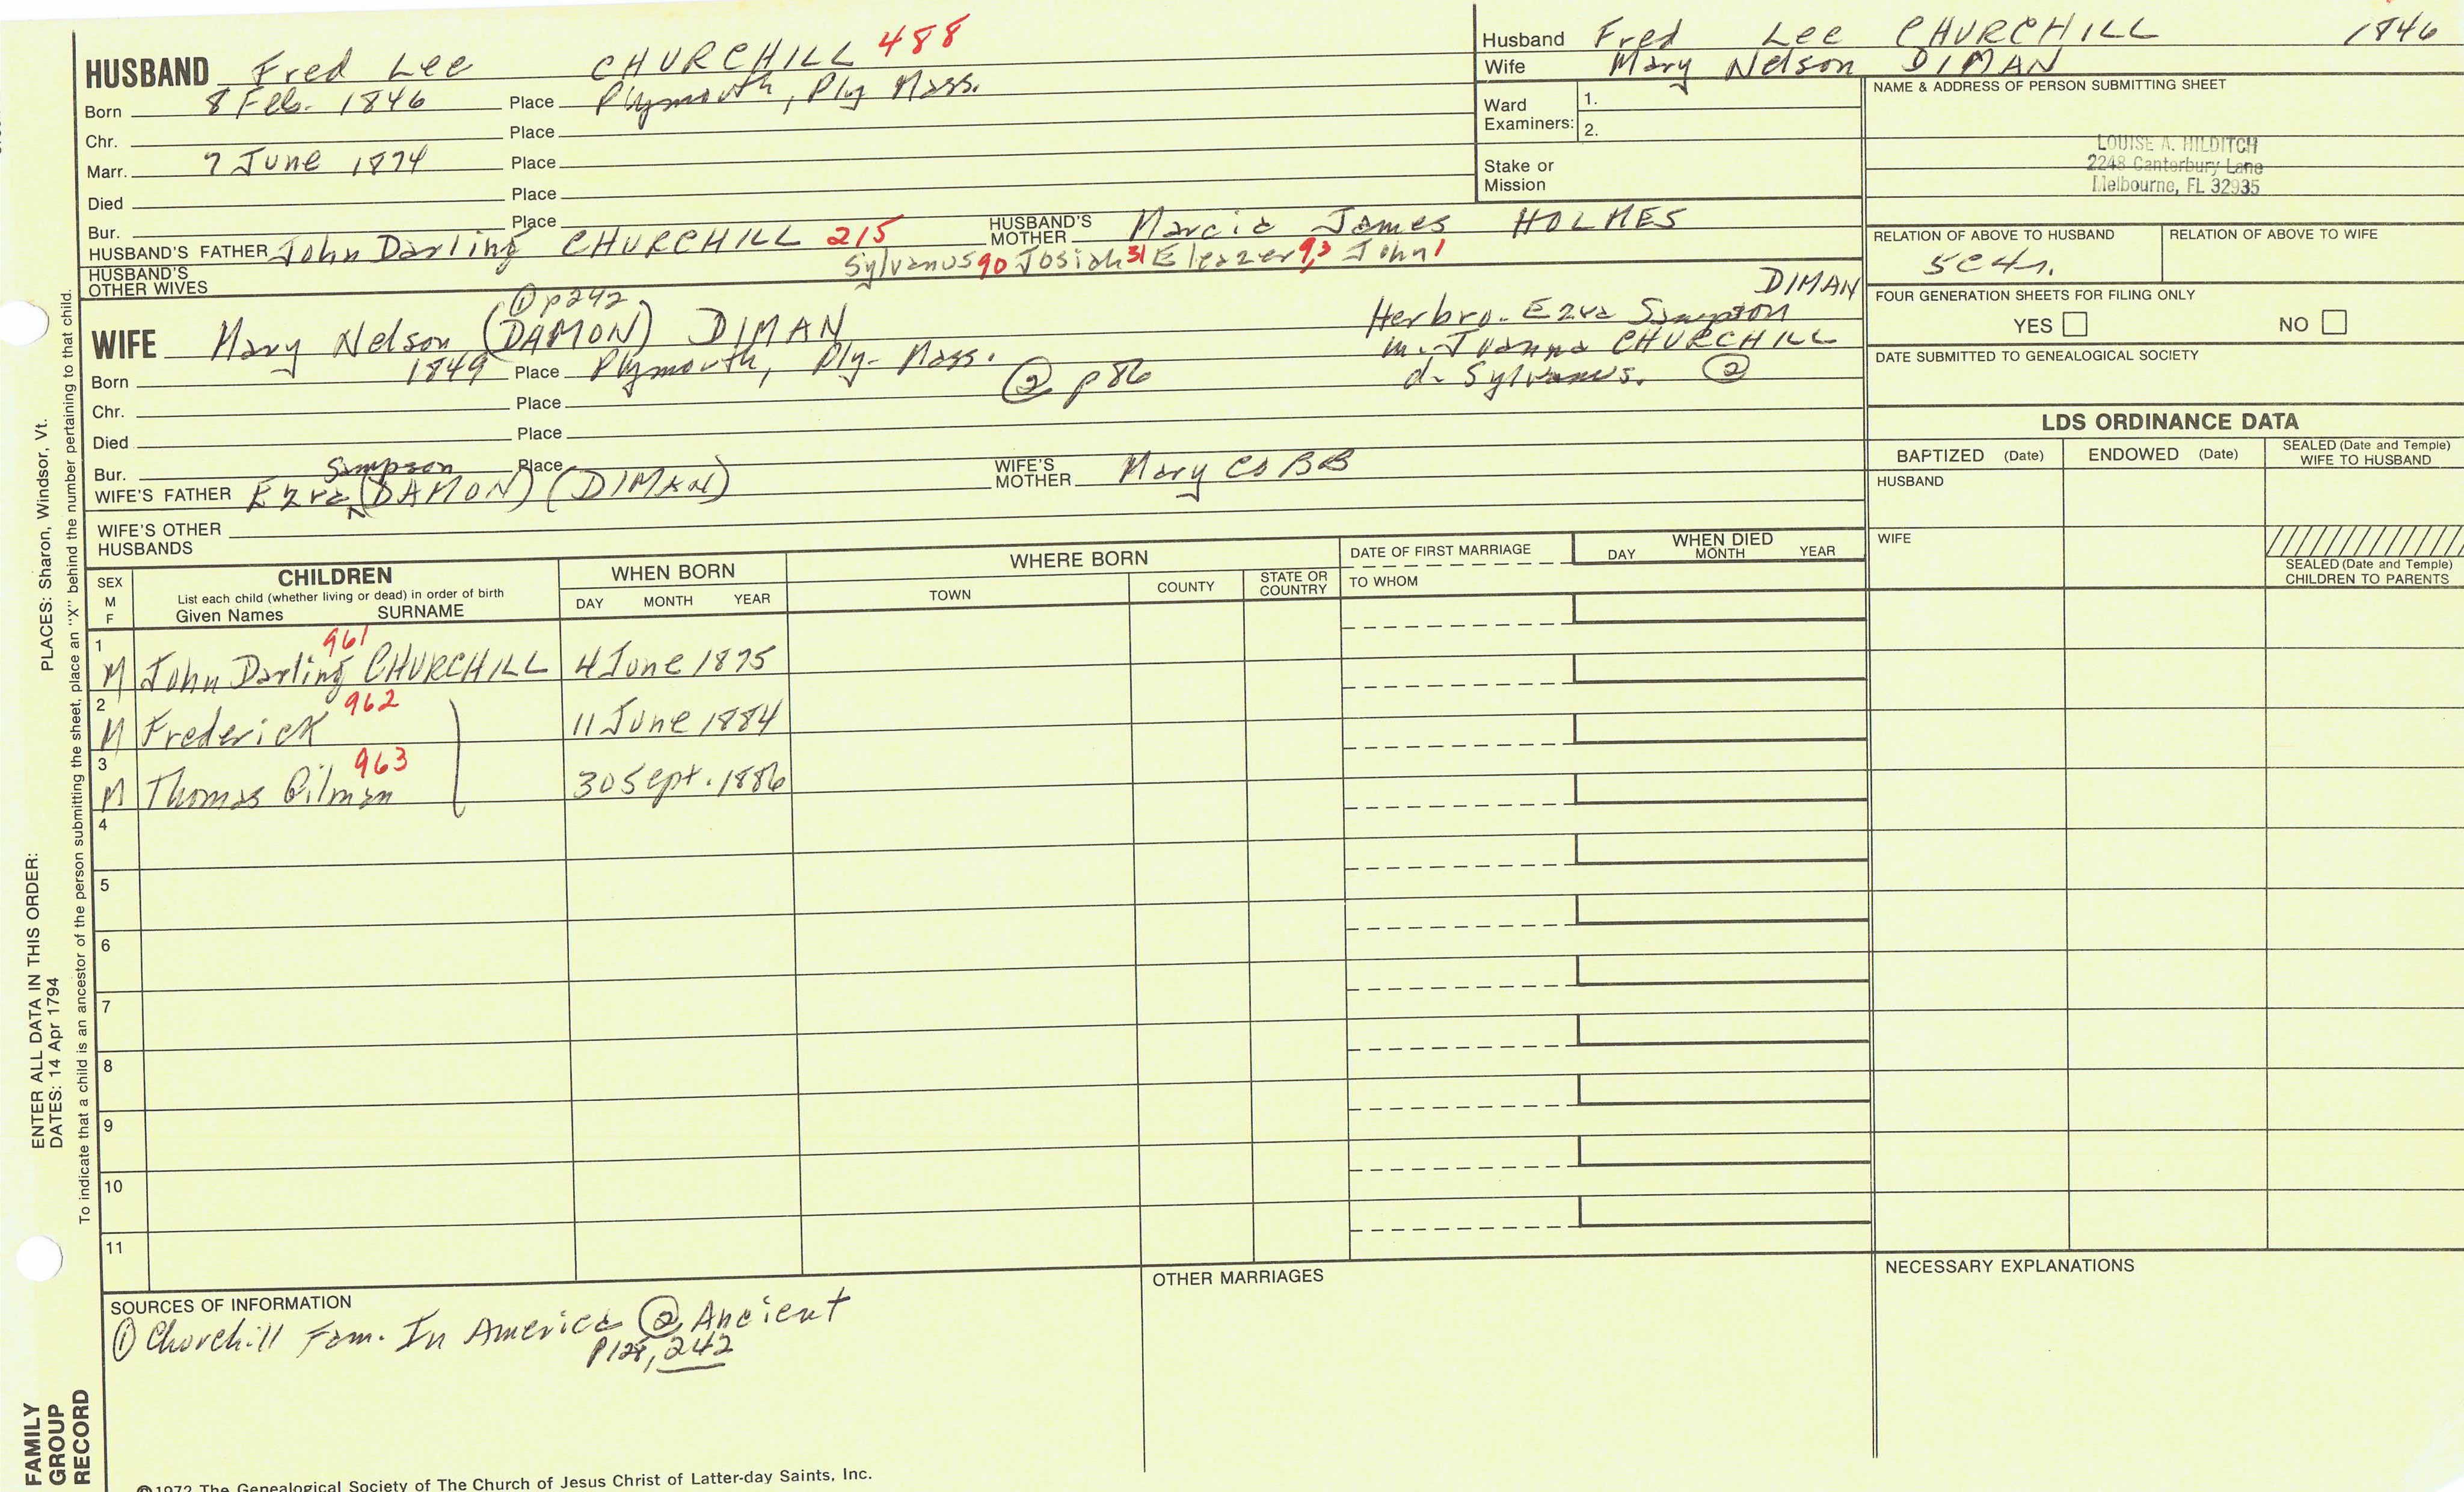 HUSBAND Fred Lee CHURCHILL 488
Born 8 Feb. 1846 Place Plymouth, Ply Mass.
Chr. Place
Marr. 7 June 1874 Place
Died Place
Bur. Place
HUSBAND'S FATHER John Darling CHURCHILL 215 HUSBAND'S MOTHER Marcia James HOLMES
HUSBAND'S OTHER WIVES Sylvanus 90 Josiah 31 Eleazer 9,3 John 1
Husband Fred Lee CHURCHILL 1846
Wife Mary Nelson DIMAN
Ward Examiners: 1.
2.
Stake or Mission
NAME & ADDRESS OF PERSON SUBMITTING SHEET
LOUISE A. HILDITCH
2248 Canterbury Lane
Melbourne, FL 32935
RELATION OF ABOVE TO HUSBAND RELATION OF ABOVE TO WIFE
5c4r.
FOUR GENERATION SHEETS FOR FILING ONLY
YES NO
DATE SUBMITTED TO GENEALOGICAL SOCIETY
① p242
WIFE Mary Nelson (DAMON) DIMAN
Born 1849 Place Plymouth, Ply- Mass. ② p86
Chr. Place
Died Place
Bur. Place
WIFE'S FATHER Ezra Simpson (DAMON) (DIMAN) WIFE'S MOTHER Mary COBB
WIFE'S OTHER HUSBANDS
DIMAN
Her bro. Ezra Sampson
m. Juanna CHURCHILL
d- Sylvanus. ②
LDS ORDINANCE DATA
BAPTIZED (Date) ENDOWED (Date) SEALED (Date and Temple) WIFE TO HUSBAND
HUSBAND
WIFE
SEALED (Date and Temple) CHILDREN TO PARENTS
SEX M F
CHILDREN
List each child (whether living or dead) in order of birth
Given Names SURNAME
WHEN BORN
DAY MONTH YEAR
WHERE BORN
TOWN COUNTY STATE OR COUNTRY
DATE OF FIRST MARRIAGE
TO WHOM
WHEN DIED
DAY MONTH YEAR
1 M John Darling CHURCHILL 961 4 June 1875
2 M Frederick 962 11 June 1884
3 M Thomas Gilman 963 30 Sept. 1886
4
5
6
7
8
9
10
11
SOURCES OF INFORMATION
① Churchill Fam. In America ② Ancient
P128, 242
OTHER MARRIAGES
NECESSARY EXPLANATIONS
©1972 The Genealogical Society of The Church of Jesus Christ of Latter-day Saints, Inc.
FAMILY GROUP RECORD
ENTER ALL DATA IN THIS ORDER:
DATES: 14 Apr 1794
PLACES: Sharon, Windsor, Vt.
To indicate that a child is an ancestor of the person submitting the sheet, place an "X" behind the number pertaining to that child.